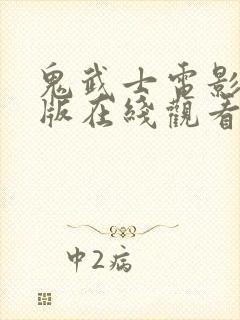 鬼武士電影
版在綫觀看
中2病